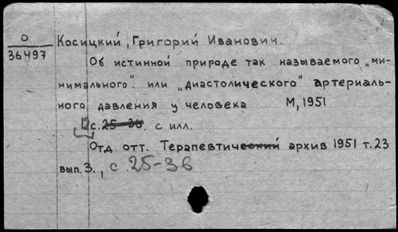 О
36497
Косицкий, Григорий Иванович.
Об истинной природе так называемого "ми-
нимального" или "диастолического" артериаль-
ного давления у человека М, 1951
12с. 25-36. с илл.
Отд. отт. Терапевтический архив 1951 т.23
вып. 3., с 25-36